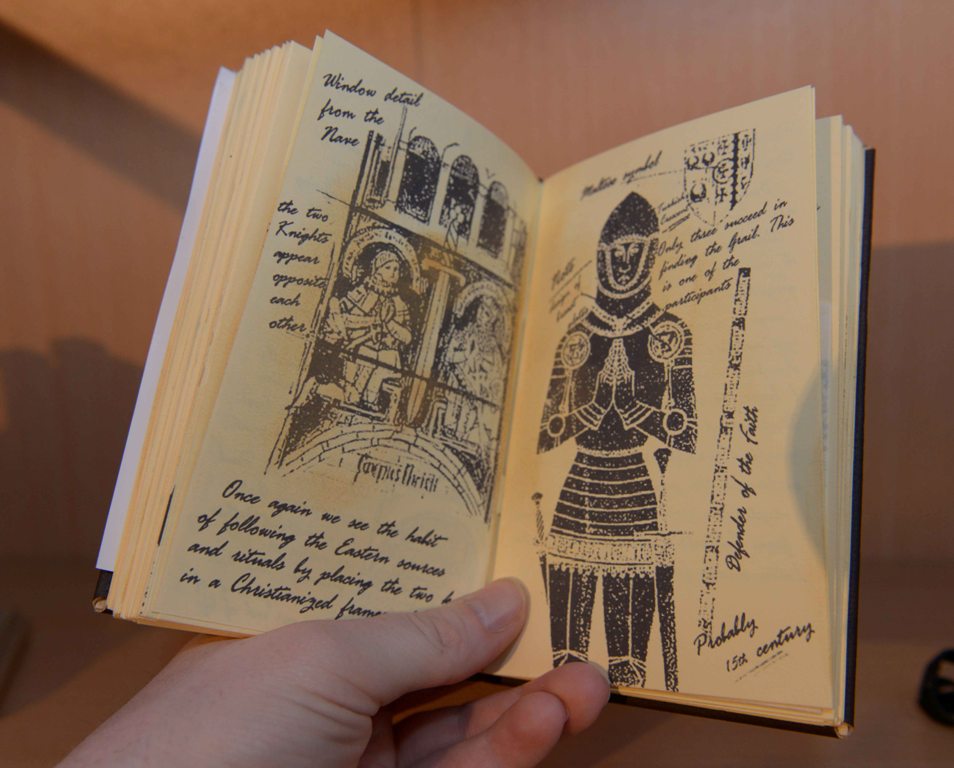 Window detail
from the
Nave
the two
Knights
appear
opposite
each
other
Once again we see the habit
of following the Eastern sources
and rituals by placing the two
in a Christianized
Maltese symbol
Only three succeed in
finding the Grail. This
is one of the
participants
Defender of the Faith
Probably
15th century